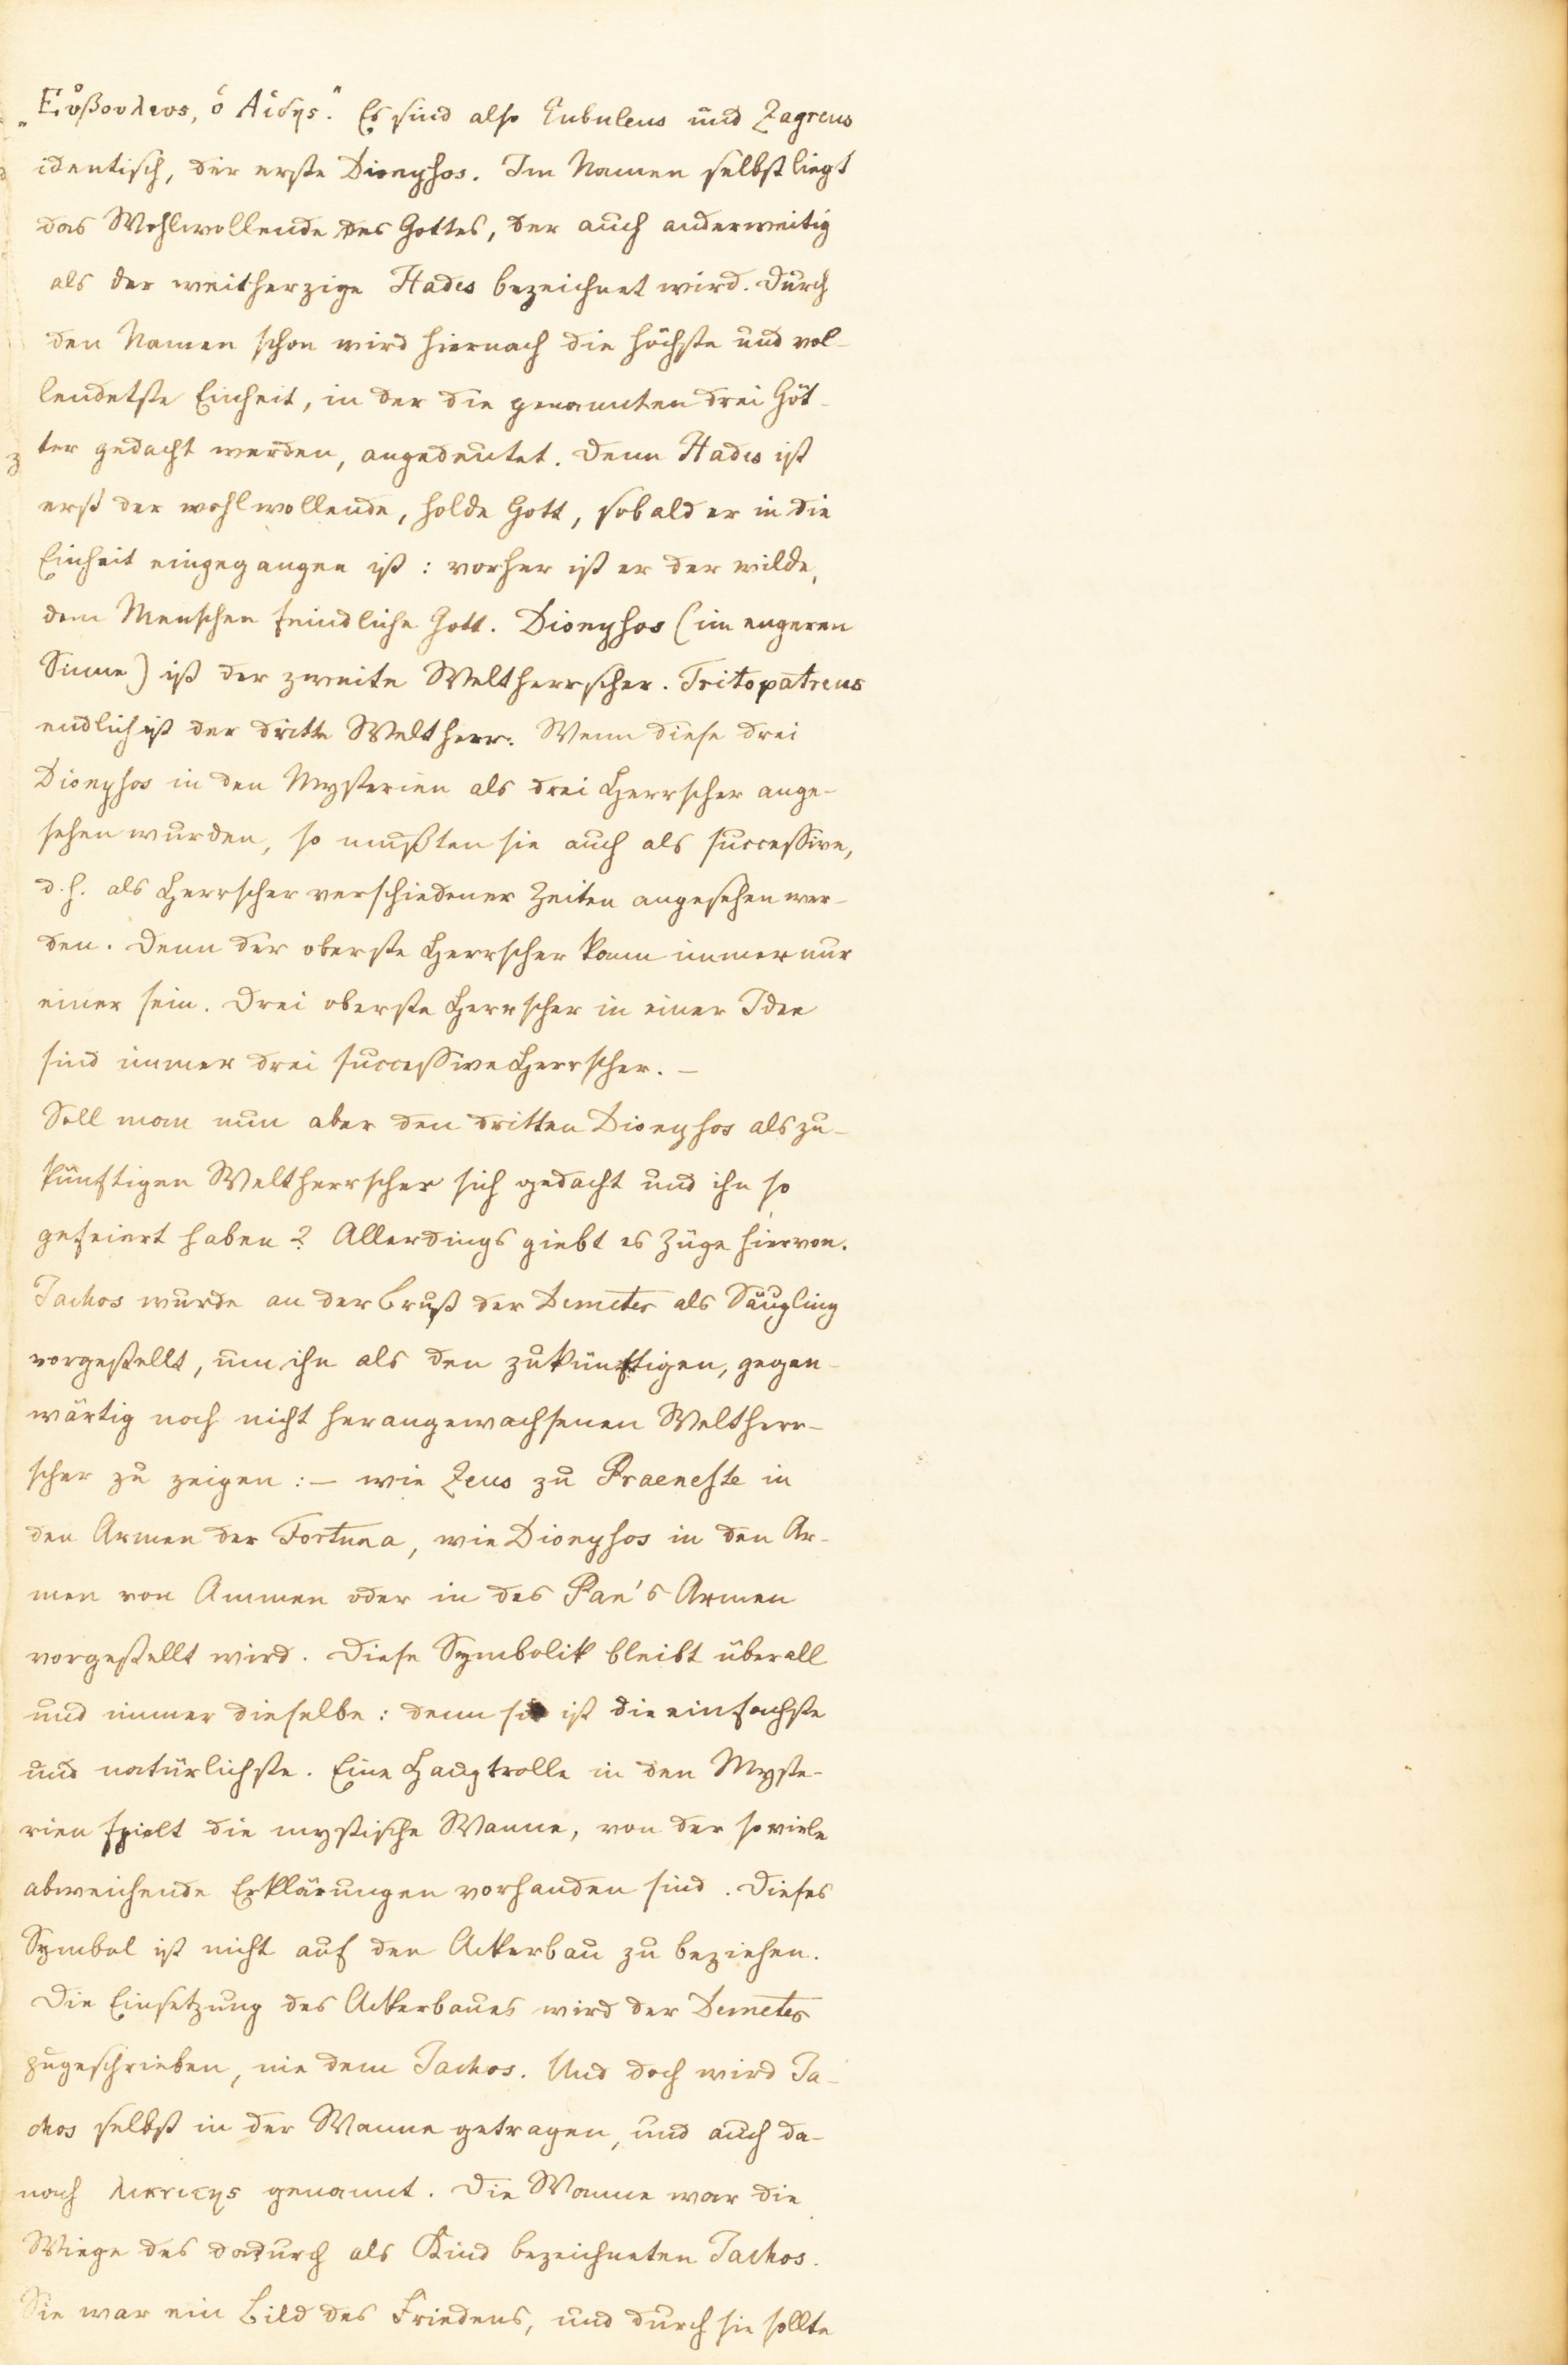 „Εὐβουλευς, ὁ Αἵδης." Es sind also Eubuleus und Zagreus
identisch, der erste Dionysos. Im Namen selbst liegt
das Wohlwollende des Gottes, der auch anderweitig
als der weitherzige Hades bezeichnet wird. Durch
den Namen schon wird hiernach die höchste und vol-
lendetste Einheit, in der die genannten drei Göt-
ter gedacht werden, angedeutet. Denn Hades ist
erst der wohlwollende, holde Gott, sobald er in die
Einheit eingegangen ist: vorher ist er der wilde,
dem Menschen feindliche Gott. Dionysos (im engeren
Sinne) ist der zweite Weltherrscher. Tritopatreus
endlich ist der dritte Weltherr. Wenn diese drei
Dionysos in den Mysterien als drei Herrscher ange-
sehen wurden, so mußten sie auch als successive,
d. h. als Herrscher verschiedener Zeiten angesehen wer-
den. Denn der oberste Herrscher kann immer nur
einer sein. Drei oberste Herrscher in einer Idee
sind immer drei successive Herrscher. –
Soll man nun aber den dritten Dionysos als zu-
künftigen Weltherrscher sich gedacht und ihn so
gefeiert haben? Allerdings giebt es Züge hiervon.
Jachos wurde an der Brust der Demeter als Säugling
vorgestellt, um ihn als den zukünftigen, gegen-
wärtig noch nicht herangewachsenen Weltherr-
scher zu zeigen: – wie Zeus zu Praeneste in
den Armen der Fortuna, wie Dionysos in den Ar-
men von Ammen oder in des Pan's Armen
vorgestellt wird. Diese Symbolik bleibt überall
und immer dieselbe: denn sie ist die einfachste
und natürlichste. Eine Hauptrolle in den Myste-
rien spielt die mystische Wanne, von der so viele
abweichende Erklärungen vorhanden sind. Dieses
Symbol ist nicht auf den Ackerbau zu beziehen.
Die Einsetzung des Ackerbaues wird der Demeter
zugeschrieben, nie dem Jachos. Und doch wird Ja-
chos selbst in der Wanne getragen, und auch da-
nach genannt. Die Wanne war die
Wiege des dadurch als Kind bezeichneten Jachos.
Sie war ein Bild des Friedens, und durch sie sollte